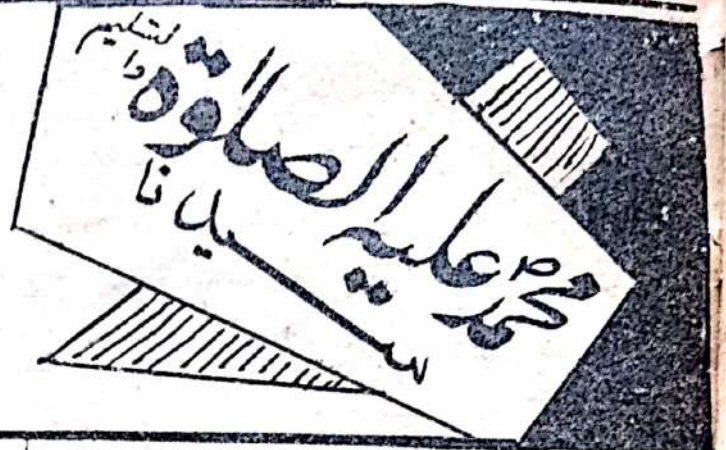 سیدنا
محمد علیہ الصلوٰۃ
والتسلیم